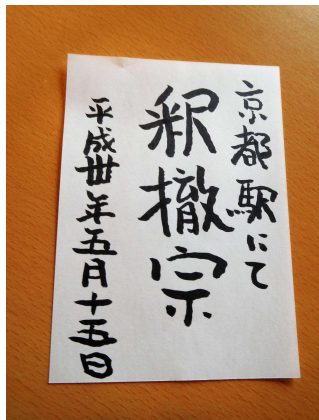 京都駅にて
釈撤宗
平成卅年五月十五日